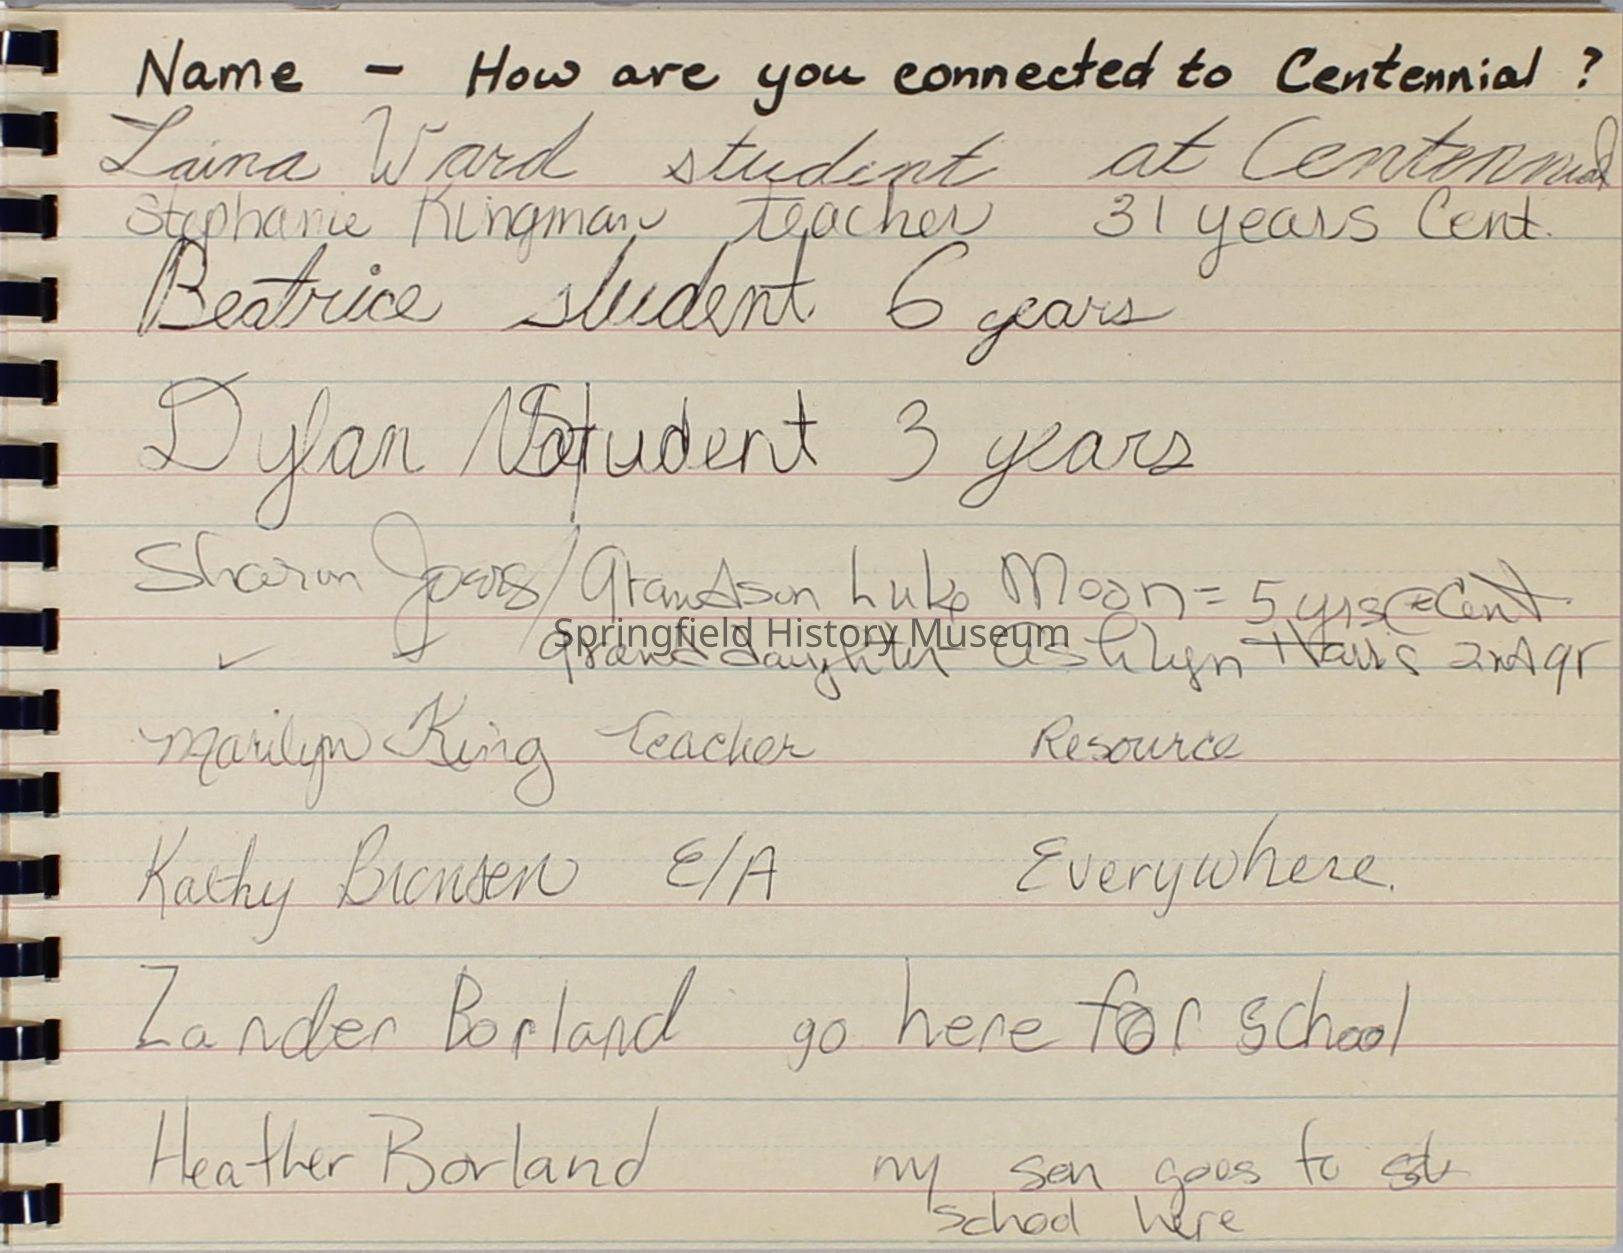 Name - How are you connected to Centennial ?
Laina Ward student at Centennial
Stephanie Kingman teacher 31 years Cent.
Beatrice student 6 years
Dylan Student 3 years
Sharon / Grandson Luke Moon = 5 yrs @ Cent
Springfield History Museum
✓ ✓ Granddaughter Ashlyn Harris 2nd gr
Marilyn King Teacher Resource
Kathy Bronsen E/A Everywhere.
Zander Borland go here for school
Heather Borland my son goes to
school here